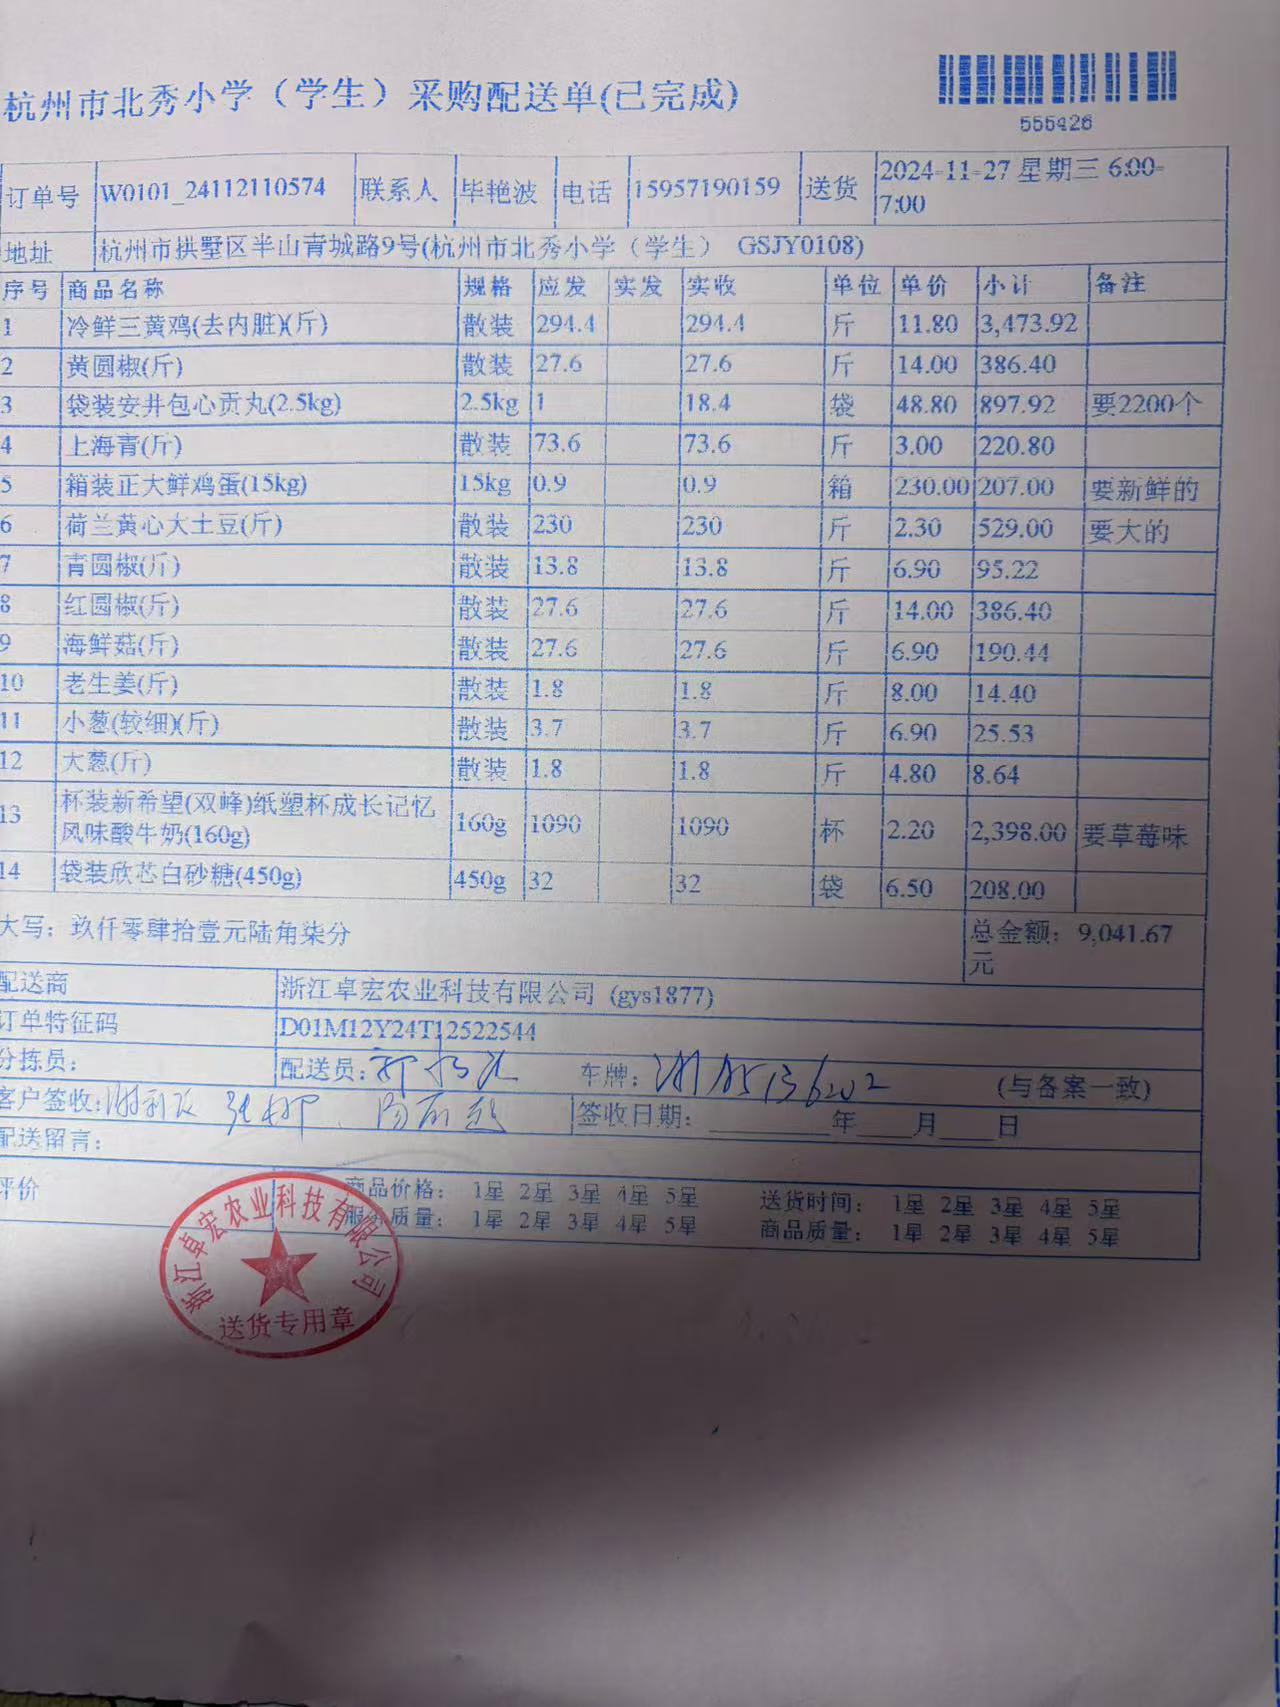 杭州市北秀小学（学生）采购配送单(已完成)
555426
订单号 W0101_24112110574 联系人 毕艳波 电话 15957190159 送货 2024-11-27 星期三 6:00-7:00
地址 杭州市拱墅区半山青城路9号(杭州市北秀小学（学生） GSJY0108)
序号 商品名称 规格 应发 实发 实收 单位 单价 小计 备注
1 冷鲜三黄鸡(去内脏)(斤) 散装 294.4 294.4 斤 11.80 3,473.92
2 黄圆椒(斤) 散装 27.6 27.6 斤 14.00 386.40
3 袋装安井包心贡丸(2.5kg) 2.5kg 1 18.4 袋 48.80 897.92 要2200个
4 上海青(斤) 散装 73.6 73.6 斤 3.00 220.80
5 箱装正大鲜鸡蛋(15kg) 15kg 0.9 0.9 箱 230.00 207.00 要新鲜的
6 荷兰黄心大土豆(斤) 散装 230 230 斤 2.30 529.00 要大的
7 青圆椒(斤) 散装 13.8 13.8 斤 6.90 95.22
8 红圆椒(斤) 散装 27.6 27.6 斤 14.00 386.40
9 海鲜菇(斤) 散装 27.6 27.6 斤 6.90 190.44
10 老生姜(斤) 散装 1.8 1.8 斤 8.00 14.40
11 小葱(较细)(斤) 散装 3.7 3.7 斤 6.90 25.53
12 大葱(斤) 散装 1.8 1.8 斤 4.80 8.64
13 杯装新希望(双峰)纸塑杯成长记忆风味酸牛奶(160g) 160g 1090 1090 杯 2.20 2,398.00 要草莓味
14 袋装欣芯白砂糖(450g) 450g 32 32 袋 6.50 208.00
大写：玖仟零肆拾壹元陆角柒分 总金额：9,041.67元
配送商 浙江卓宏农业科技有限公司 (gys1877)
订单特征码 D01M12Y24T12522544
分拣员： 配送员： 车牌： (与备案一致)
客户签收： 签收日期： 年 月 日
配送留言：
评价 商品价格： 1星 2星 3星 4星 5星 送货时间： 1星 2星 3星 4星 5星
服务质量： 1星 2星 3星 4星 5星 商品质量： 1星 2星 3星 4星 5星
浙江卓宏农业科技有限公司
送货专用章